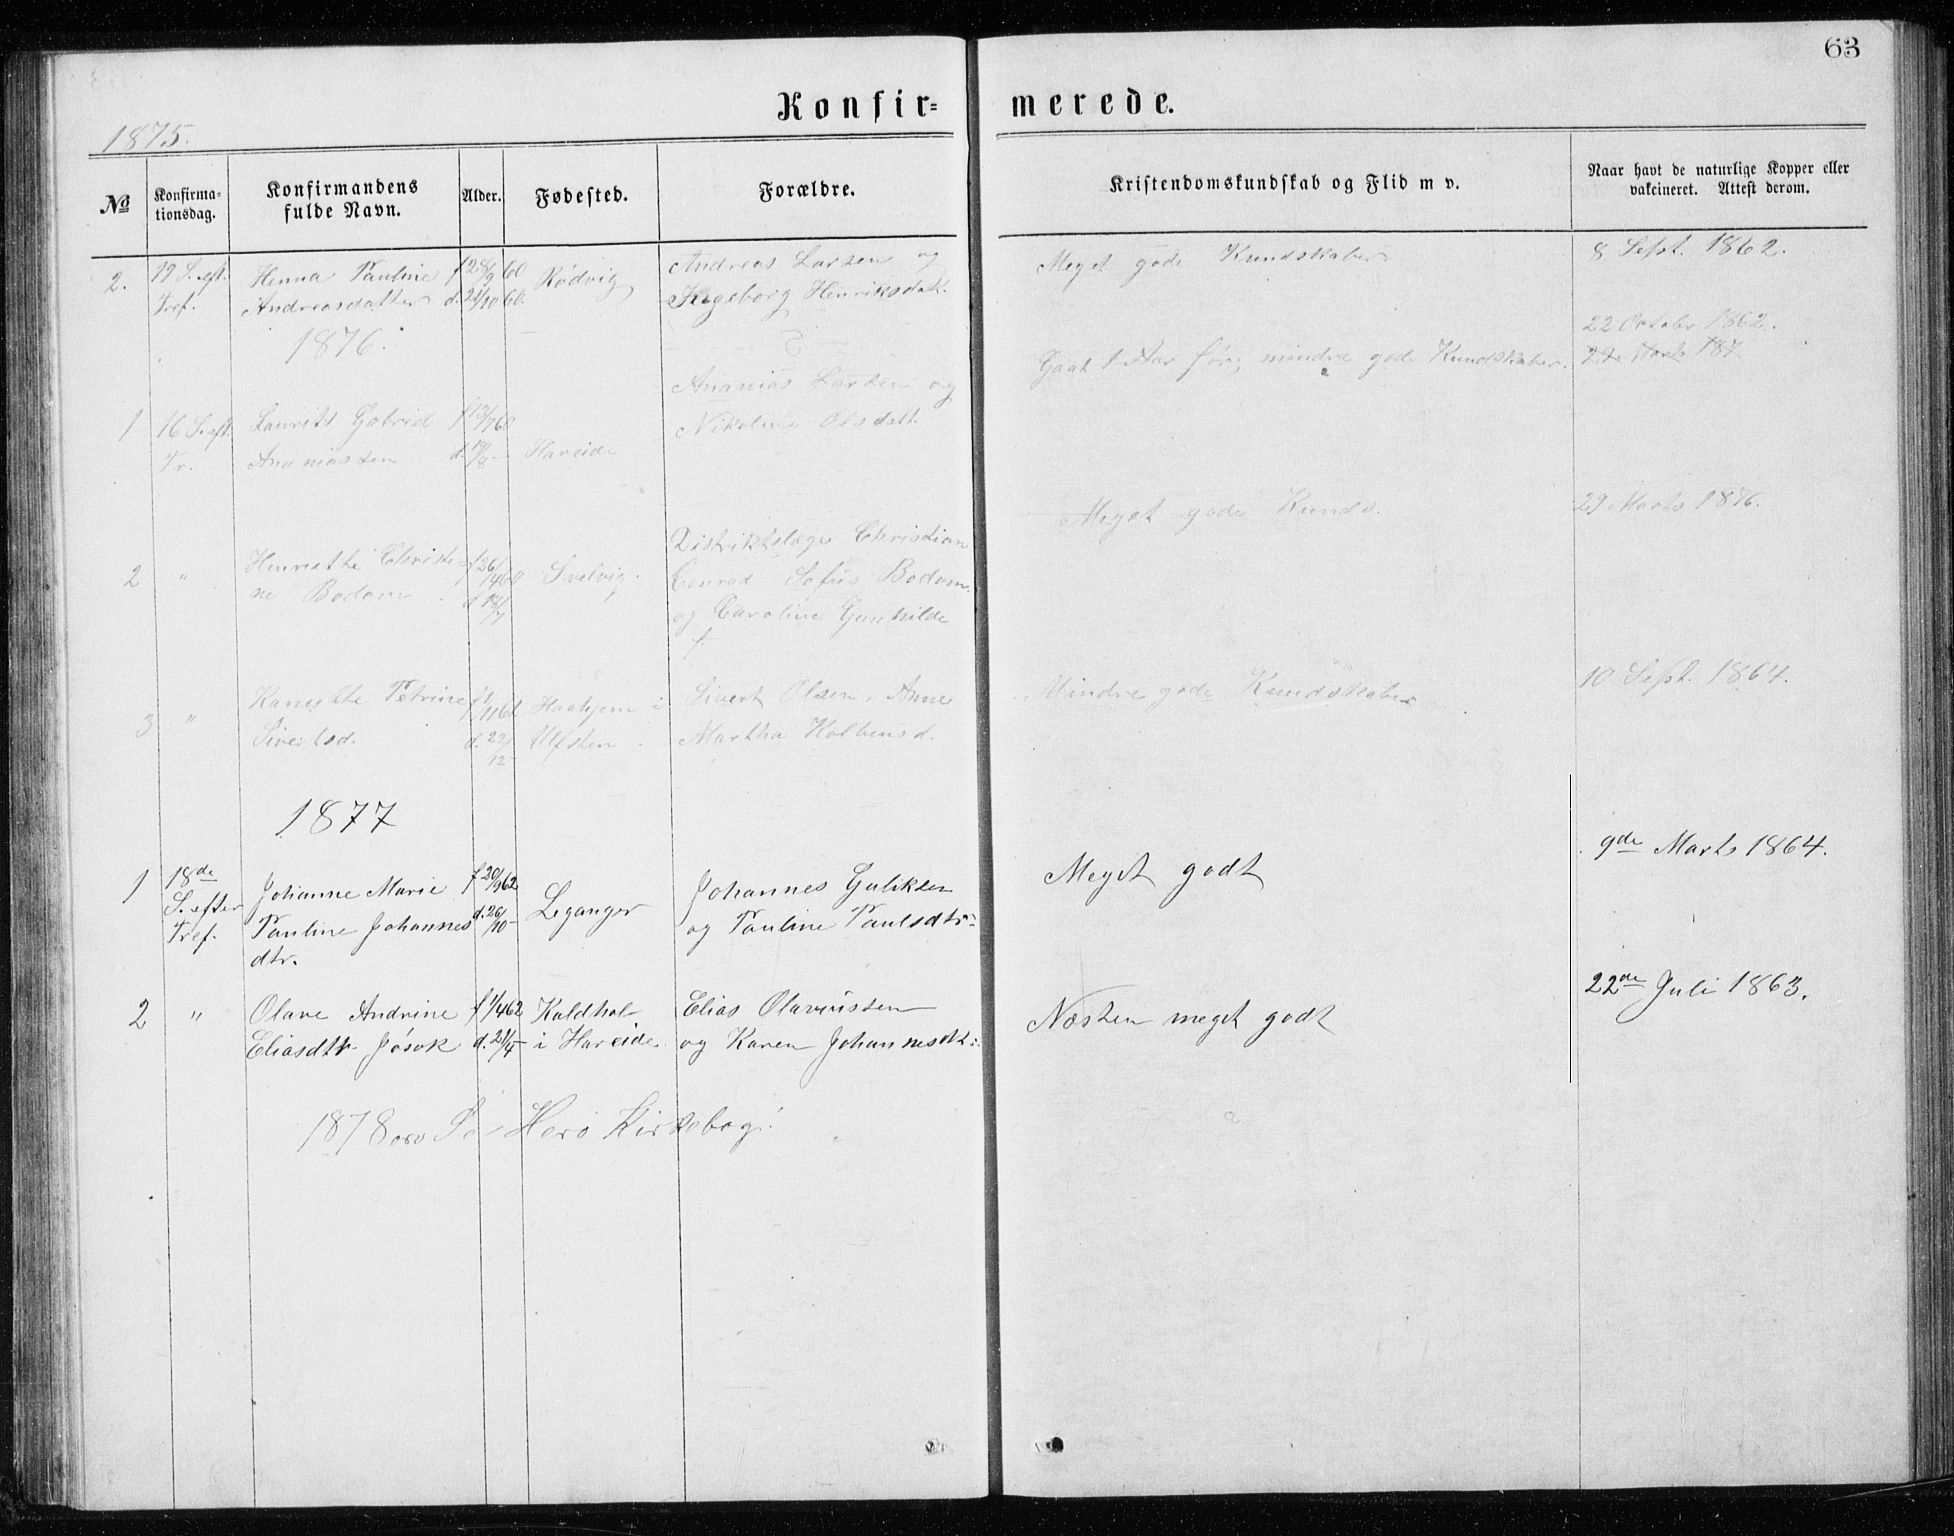 63
Konfir=
merede.
1875.
№
Konfirma-
tionsdag.
Konfirmandens
fulde Navn.
Alder.
Fødested.
Forældre.
Kristendomskundskab og Flid m v.
Naar havt de naturlige Kopper eller
vakcineret. Attest derom.
2. 19 S. eft. Henna Pauline f 28/9 60 Rødvig Andreas Larsen og Meget gode Kundskaber 8 Sept. 1862.
Tref. Andreasdatter d. 21/10 60. Ingeborg Henriksdatt.
1876.
22 October 1862.
Gaat 1 Aar før; mindre gode Kundskaber. 29 Marts 187
Ananias Larsen og
1 16 S. eft. Laurits Gabriel f 13/7 60 Nikoline Olsdatt.
Tr. Ananiassen d. 19/8 - Hareide
Meget gode Kunds. 29 Marts 1876.
Distriktslæge Christian
2 " Henriette Christi- f 26/ Svelvig. Conrad Sofus Bodom
ne Bodom og Caroline Gunhilde
f.
3 " Hansette Petrine f 1/11 61 Haahjem i Sivert Olsen, Anne Mindre gode Kundskaber 10 Sept. 1864.
Sivertsd. d. 22/12 Ulfsten Martha Kolbensd.
1877
1 18de Johanne Marie f 20/9 62 Leganger Johannes Guliksen Meget godt 9de Marts 1864.
S. efter Pauline Johannes d. 26/10 - og Pauline Paulsdtr.
Tref. dtr.
2 " Olave Andrine f 1/4 62 Kaldhol Elias Olavussen Næsten meget godt 22de Juli 1863.
Eliasdtr Jøsok d. 21/4 - i Hareide og Karen Johannesdt.
1878 Herø Kirkebog!